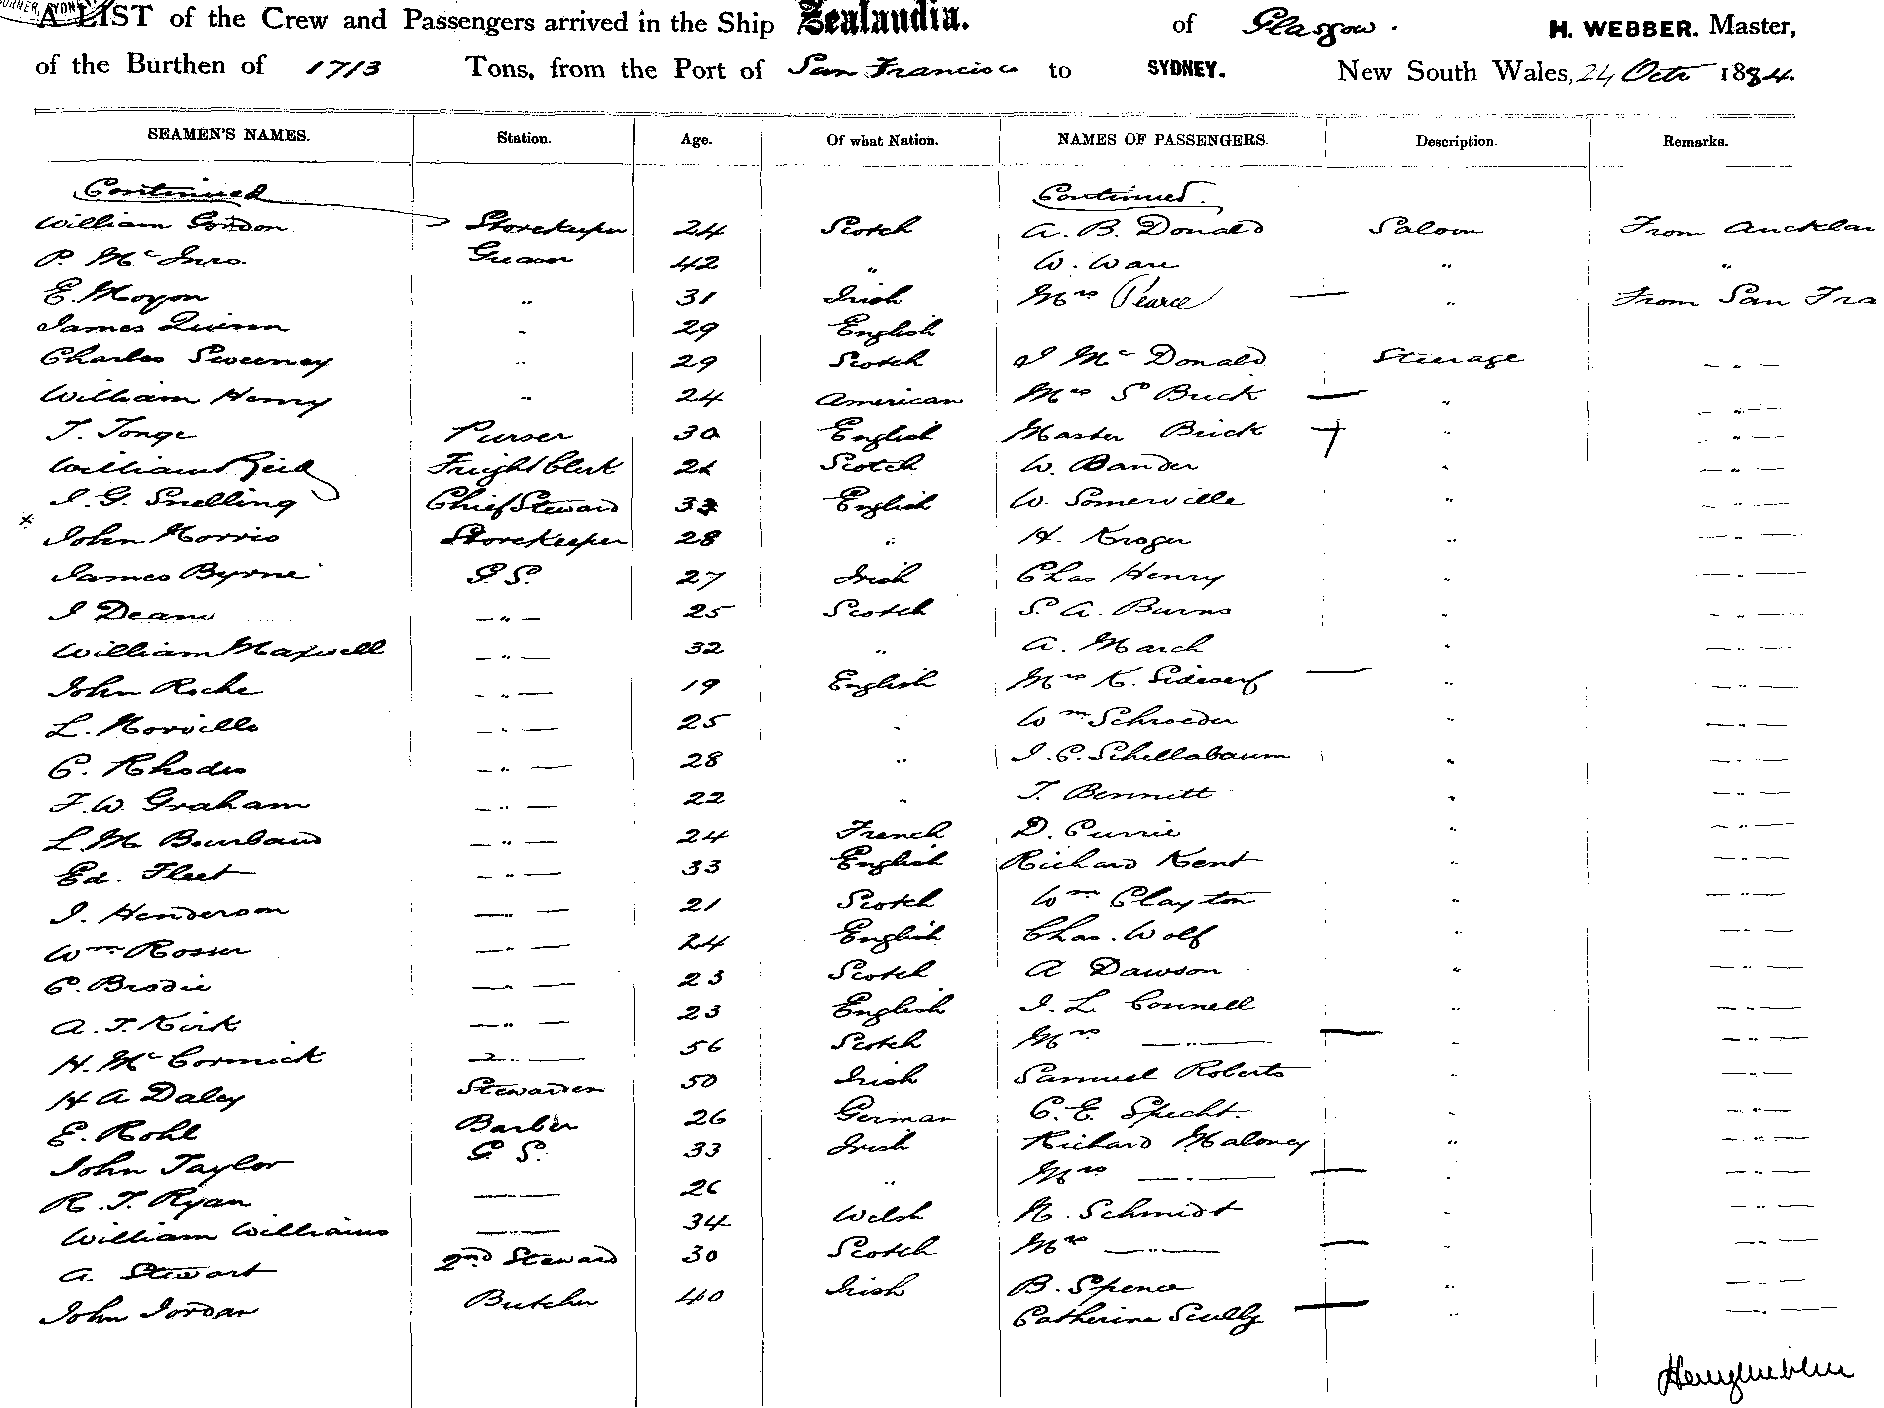 A LIST of the Crew and Passengers arrived in the Ship Zealandia. of Glasgow. H. WEBBER. Master,
of the Burthen of 1713 Tons, from the Port of San Francisco to SYDNEY. New South Wales, 24 Octr 1884.
SEAMEN'S NAMES. Station. Age. Of what Nation. NAMES OF PASSENGERS. Description. Remarks.
Continued Continued.
William Gordon Storekeeper 24 Scotch A. B. Donald Saloon From Aucklan
P. Mc 42 " W. Ware " "
E. Moyon " 31 Irish Mrs Pearce — " From San Fra
James Quinn " 29 English
Charles Sweeney " 29 Scotch J Mc Donald Steerage - " -
William Henry " 24 American Mrs S Buck — " - " -
T. Tonge Purser 30 English Master Buck " - " -
William Reid Freight Clerk 21 Scotch W. Bander " - " -
J. G. Snelling Chief Steward English W. Somerville " - " -
x John Morris Storekeeper 28 " H. Kroger " - " -
James Byrne G S. 27 Irish Chas Henry " - " -
J Deans - " - 25 Scotch S. A. Burns " - " -
William Maxwell - " - 32 " A. March " - " -
John Roche - " - 19 English Mrs K. — " - " -
L. Norville - " - 25 " Wm Schroeder " - " -
C. Rhodes - " - 28 " J. C. Schellabaum " - " -
F. W. Graham - " - 22 " T. Bennett " - " -
L. M. Bourbaud - " - 24 French D. Currie " - " -
Ed. Fleet - " - 33 English Richard Kent " - " -
J. Henderson - " - 21 Scotch Wm Clayton " - " -
Wm Rosser - " - 24 English Chas. Wolf " - " -
C. Brodie - " - 23 Scotch A Dawson " - " -
A. T. Kirk - " - 23 English J. L. Connell " - " -
H. Mc Cormick - " - 56 Scotch Mrs - " - — " - " -
H A Daley Stewardess 50 Irish Samuel Roberts " - " -
E. Rohl Barber 26 German C. E. Specht. " - " -
John Taylor G S. 33 Irish Richard Maloney " - " -
R. T. Ryan - " - 26 " Mrs - " - — " - " -
William Williams - " - 34 Welsh N. Schmidt " - " -
A. Stewart 2nd Steward 30 Scotch Mrs - " - — " - " -
John Jordan Butcher 40 Irish B. Spence " - " -
Catherine Scully — " - " -
Henry Webber